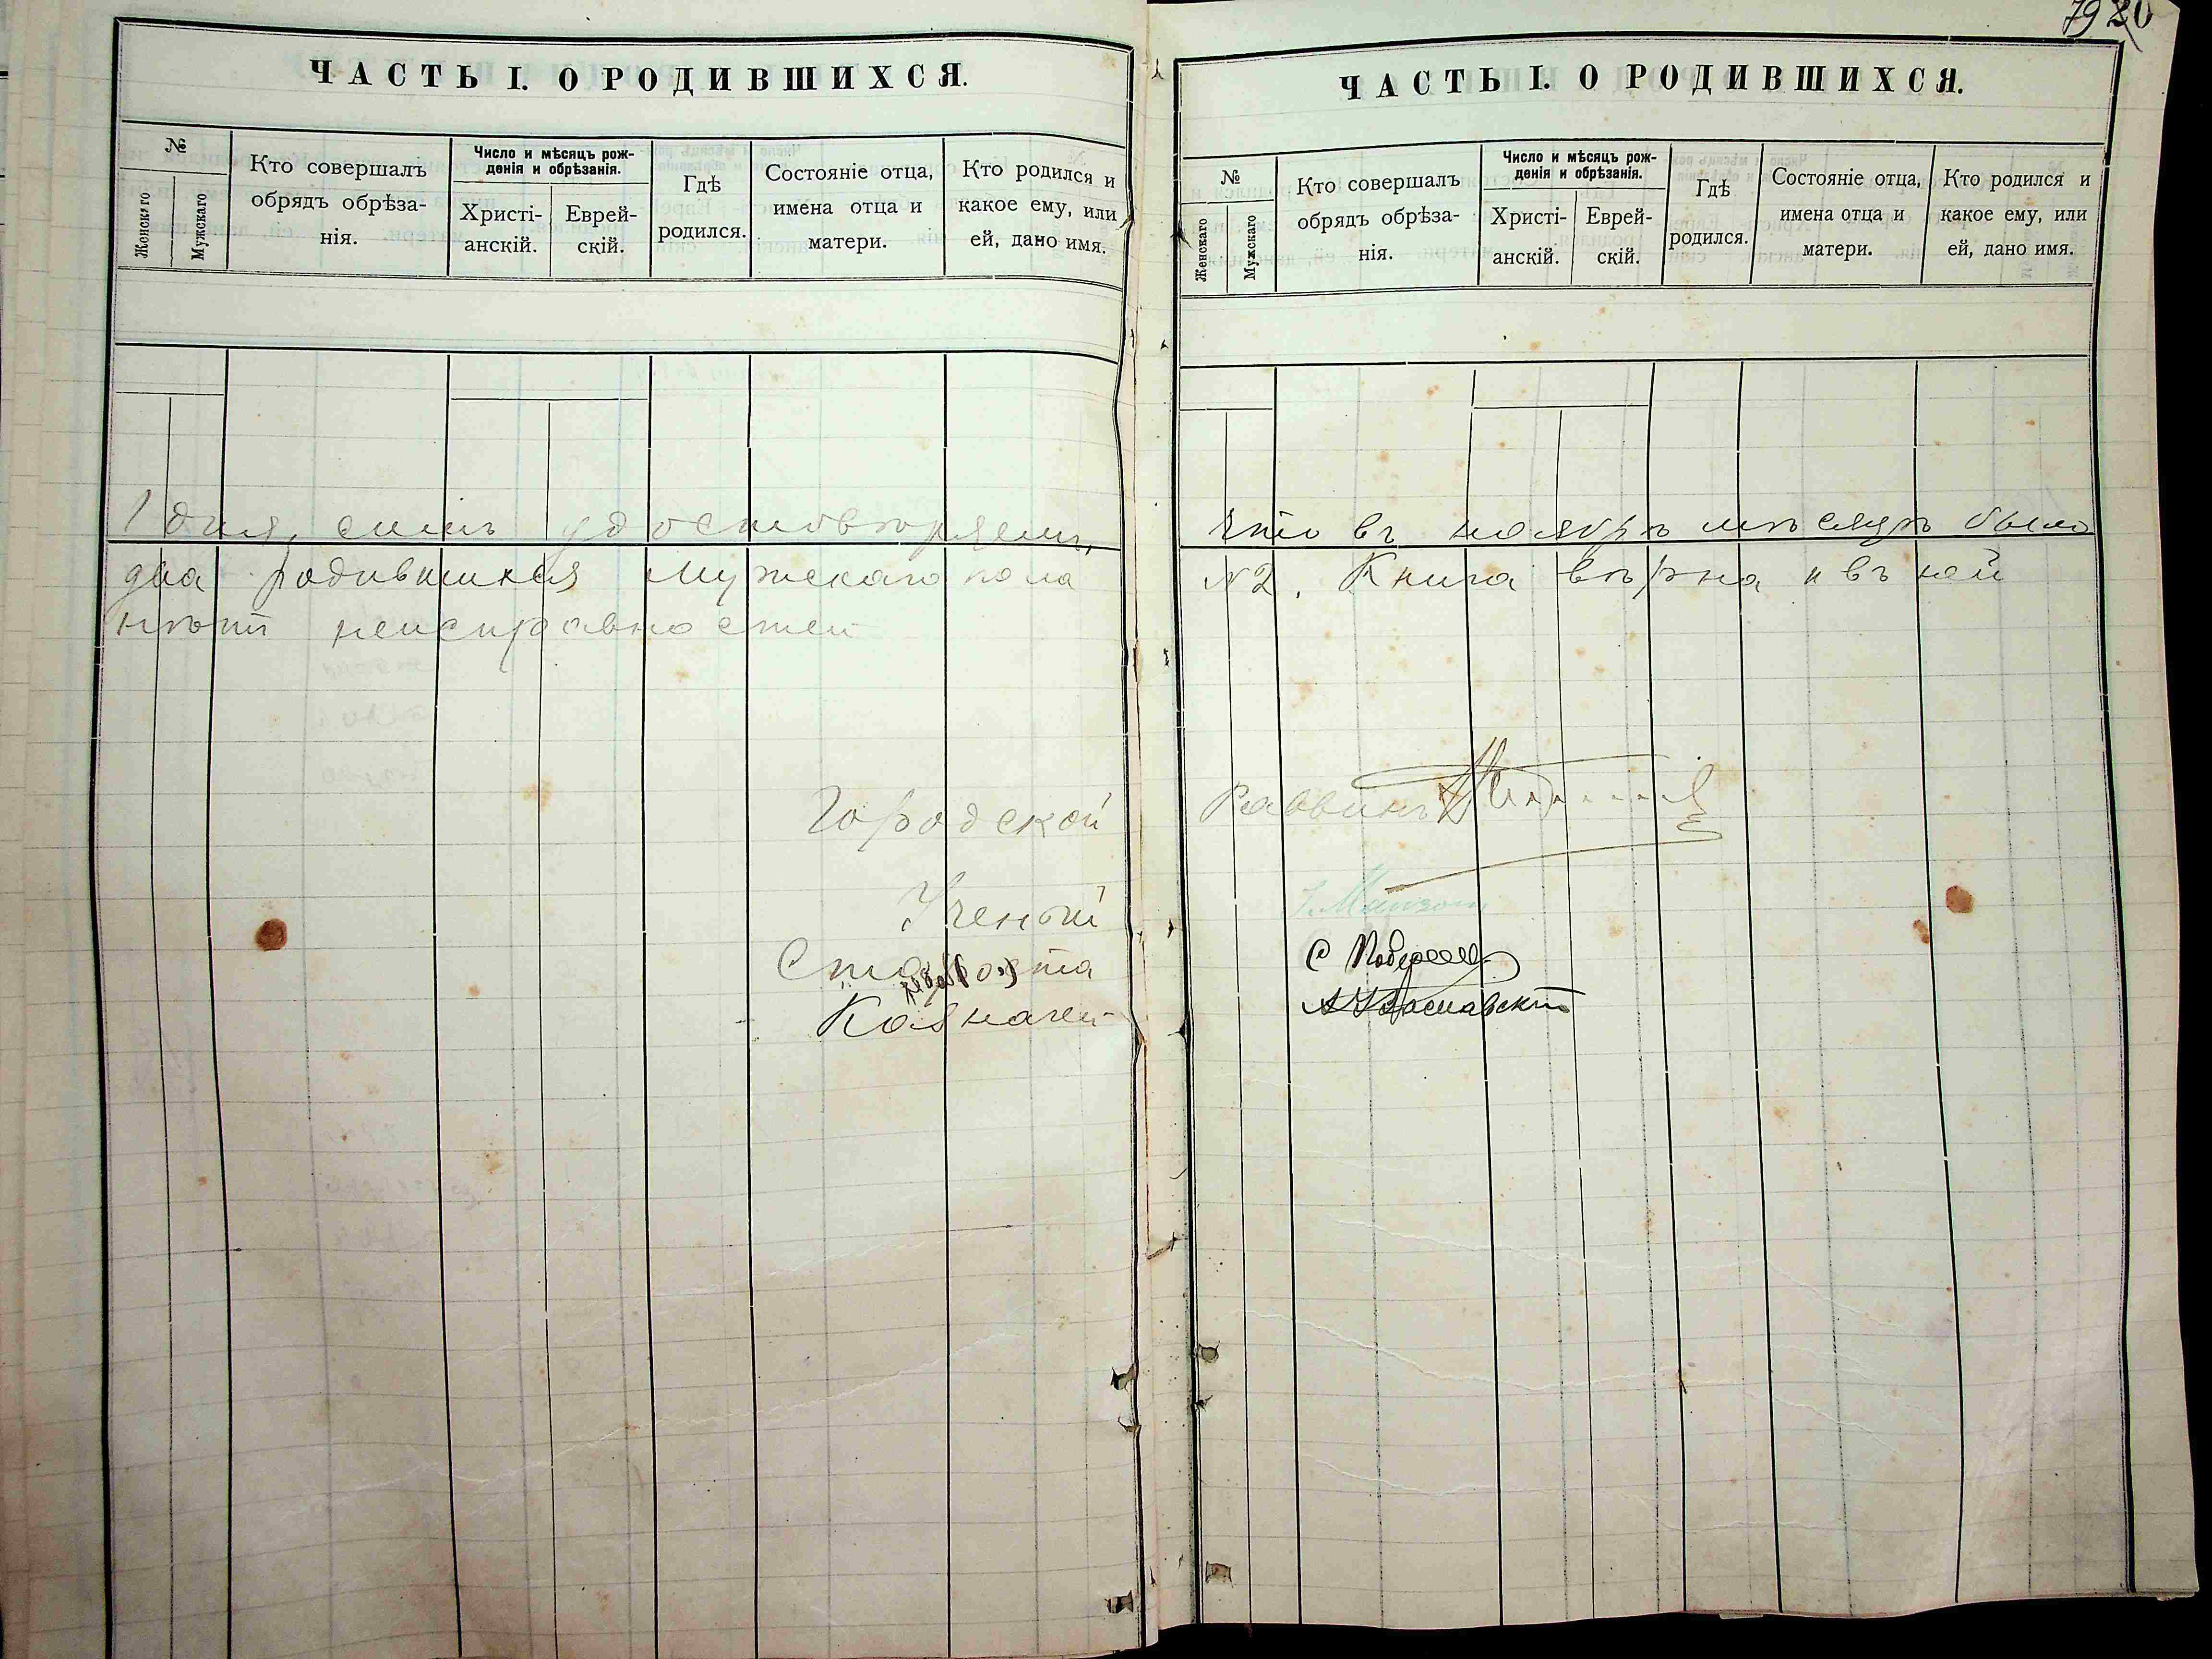 7920
ЧАСТЬ I. О РОДИВШИХСЯ.
№
Женскаго
Мужскаго
Кто совершалъ
обрядъ обрѣза-
нія.
Число и мѣсяцъ рож-
денія и обрѣзанія.
Христі-
анскій.
Еврей-
скій.
Гдѣ
родился.
Состояніе отца,
имена отца и
матери.
Кто родился и
какое ему, или
ей, дано имя.
ЧАСТЬ I. О РОДИВШИХСЯ.
№
Женскаго
Мужскаго
Кто совершалъ
обрядъ обрѣза-
нія.
Число и мѣсяцъ рож-
денія и обрѣзанія.
Христі-
анскій.
Еврей-
скій.
Гдѣ
родился.
Состояніе отца,
имена отца и
матери.
Кто родился и
какое ему, или
ей, дано имя.
1 дня, симъ удостовѣряемъ, что въ ноябрѣ мѣсяцѣ было
два родившихся мужскаго пола №2. Книга вѣрна и въ ней
нѣтъ неисправностей
Городской Раввинъ
Ученый
Староста
Казначей